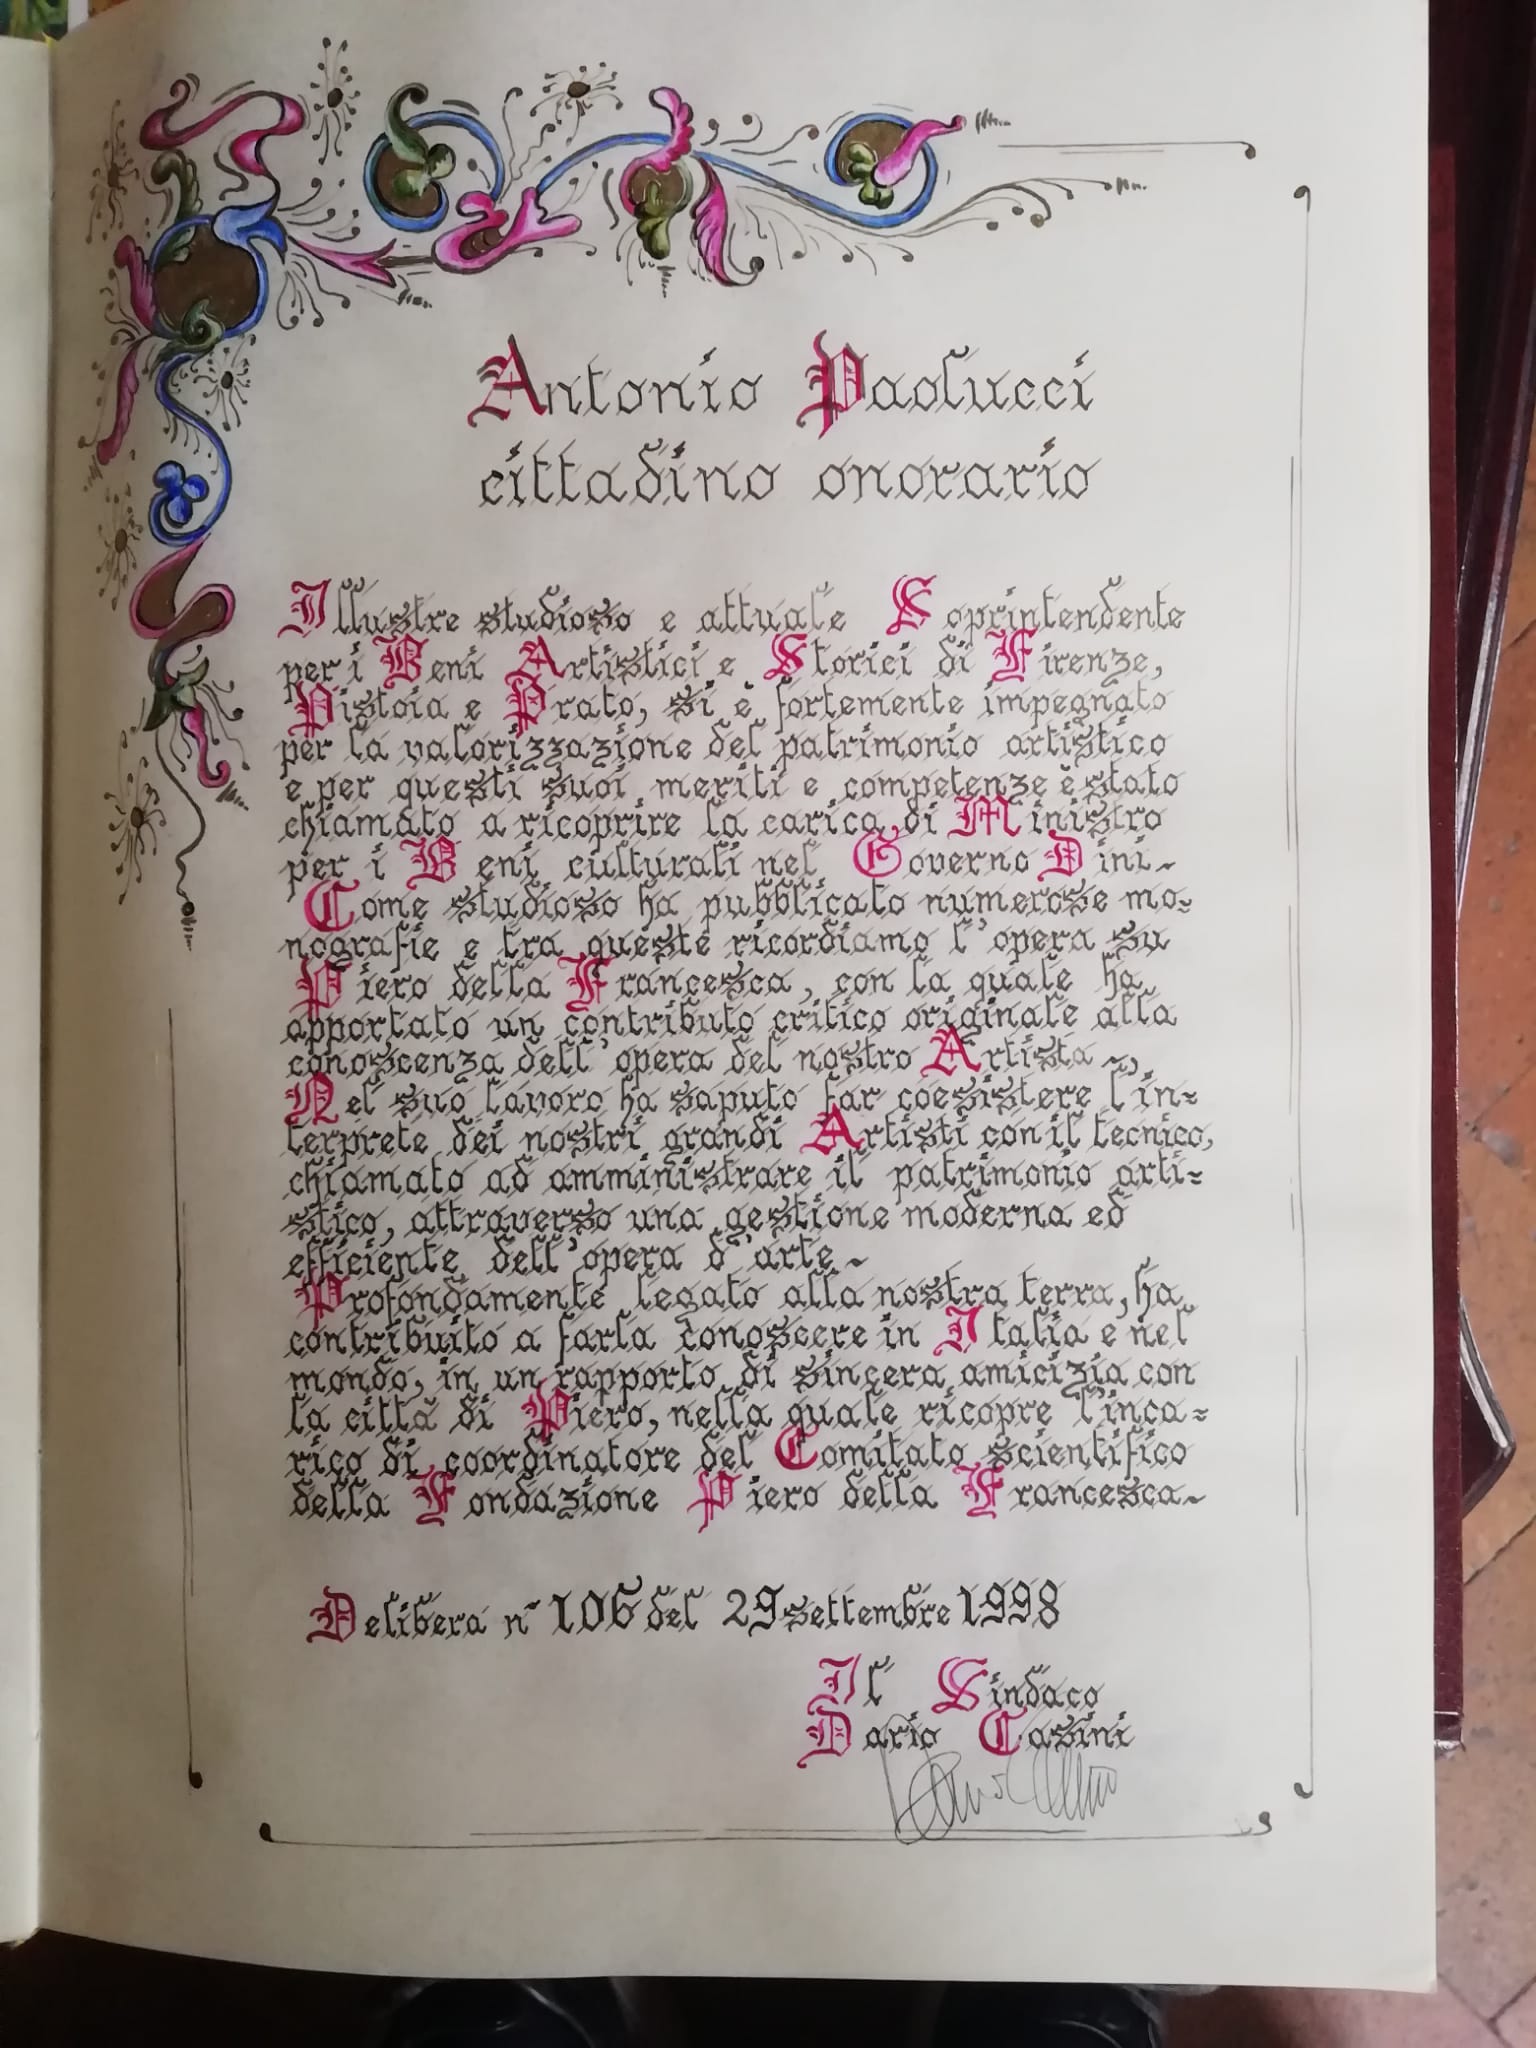 Antonio Paolucci
cittadino onorario
Illustre studioso e attuale Soprintendente
per i Beni Artistici e Storici di Firenze,
Pistoia e Prato, si è fortemente impegnato
per la valorizzazione del patrimonio artistico
e per questi suoi meriti e competenze è stato
chiamato a ricoprire la carica di Ministro
per i Beni culturali nel Governo Dini~
Come studioso ha pubblicato numerose mo=
nografie e tra queste ricordiamo l'opera su
Piero della Francesca, con la quale ha
apportato un contributo critico originale alla
conoscenza dell'opera del nostro Artista~
Nel suo lavoro ha saputo far coesistere l'in=
terprete dei nostri grandi Artisti con il tecnico,
chiamato ad amministrare il patrimonio arti=
stico, attraverso una gestione moderna ed
efficiente dell'opera d'arte~
Profondamente legato alla nostra terra, ha
contribuito a farla conoscere in Italia e nel
mondo, in un rapporto di sincera amicizia con
la città di Piero, nella quale ricopre l'inca=
rico di coordinatore del Comitato scientifico
della Fondazione Piero della Francesca~
Delibera n° 106 del 29 settembre 1998
Il Sindaco
Dario Casini